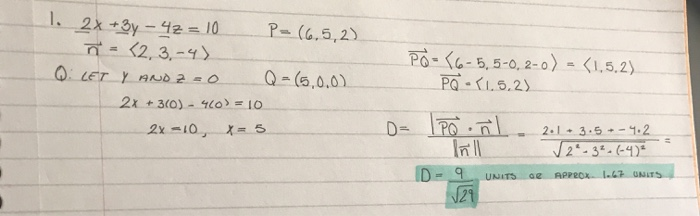 1. 2x + 3y - 4z = 10 P = (6, 5, 2)
n⃗ = <2, 3, -4>
Q: LET Y AND Z = 0 Q = (5, 0, 0)
2x + 3(0) - 4(0) = 10
2x = 10, x = 5
PQ⃗ = <6-5, 5-0, 2-0> = <1, 5, 2>
PQ⃗ = <1, 5, 2>
D = |PQ⃗ · n⃗| / ||n⃗|| = 2·1 + 3·5 + -4·2 / √2² - 3² - (-4)² =
D = 9/√29 UNITS OR APPROX. 1.67 UNITS